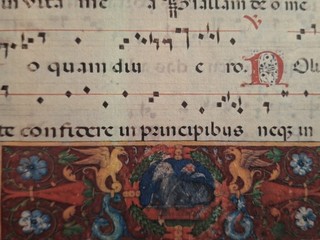 in vita me a Psallam deo me
o quam diu e ro. Noli
te confidere in principibus neq; in